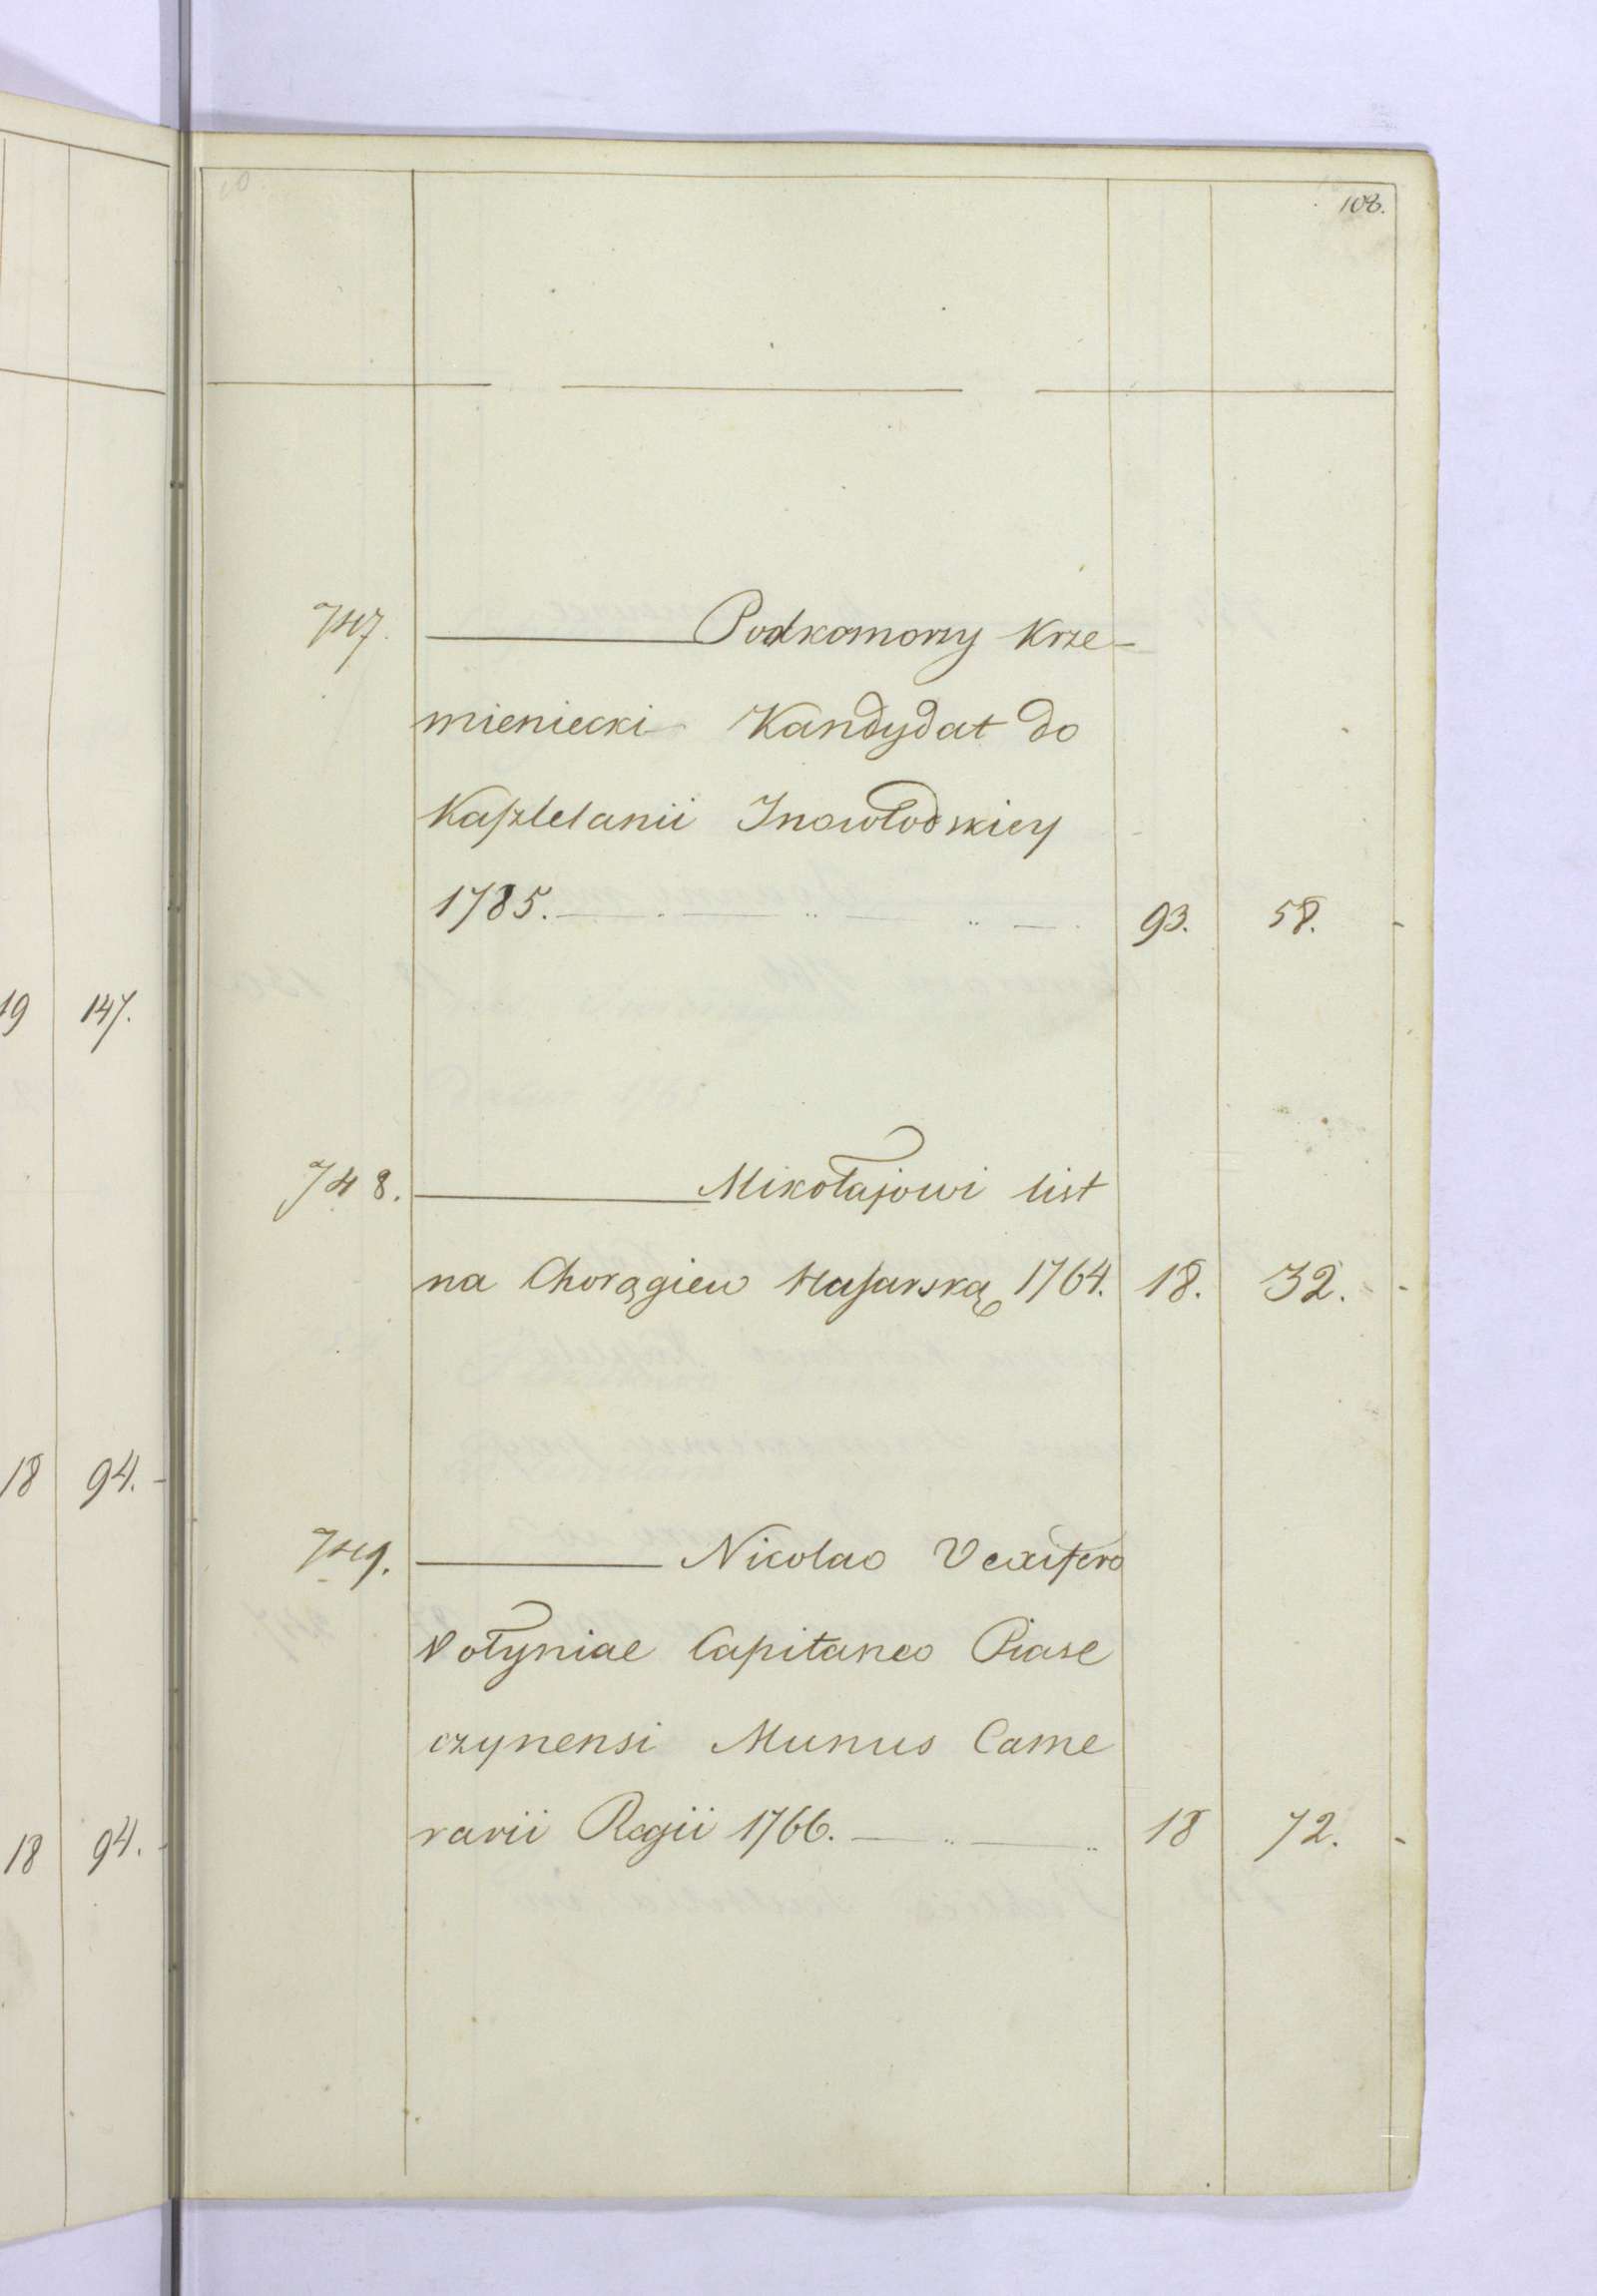 108.
747. Podkomorzy Krze-
mieniecki Kandydat do
Kaszlelanii Inowłodskiey
1785. 93. 58. -
19 147.
748. Mikołajowi list
na Chorągiew Husarską 1764. 18. 32. -
18 94. -
749. Nicolao Vexifero
Vołyniae Capitaneo Piase
czynensi Munus Came
rarii Regii 1766. 18 72. -
18 94. -